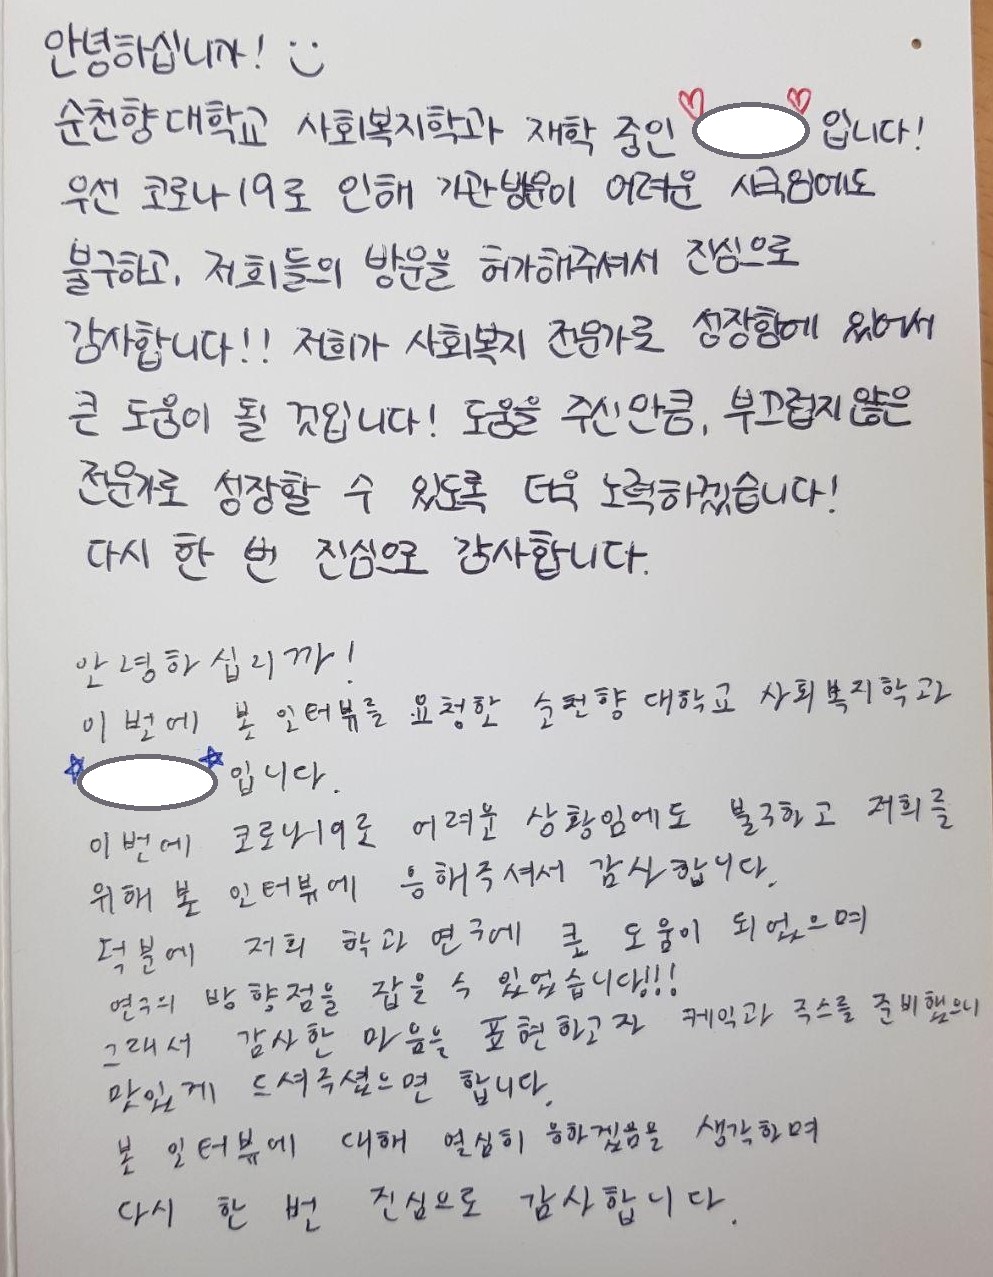 안녕하십니까! :)
순천향대학교 사회복지학과 재학 중인 입니다!
우선 코로나19로 인해 기관방문이 어려운 시국임에도
불구하고, 저희들의 방문을 허가해주셔서 진심으로
감사합니다!! 저희가 사회복지 전문가로 성장함에 있어서
큰 도움이 될 것입니다! 도움을 주신만큼, 부끄럽지않은
전문가로 성장할 수 있도록 더욱 노력하겠습니다!
다시 한 번 진심으로 감사합니다.
안녕하십니까!
이번에 본 인터뷰를 요청한 순천향대학교 사회복지학과
입니다.
이번에 코로나19로 어려운 상황임에도 불구하고 저희를
위해 본 인터뷰에 응해주셔서 감사합니다.
덕분에 저희 학과 연구에 큰 도움이 되었으며
연구의 방향점을 잡을 수 있었습니다!!!
그래서 감사한 마음을 표현하고자 케익과 주스를 준비했으니
맛있게 드셔주셨으면 합니다.
본 인터뷰에 대해 열심히 응하겠음을 생각하며
다시 한 번 진심으로 감사합니다.